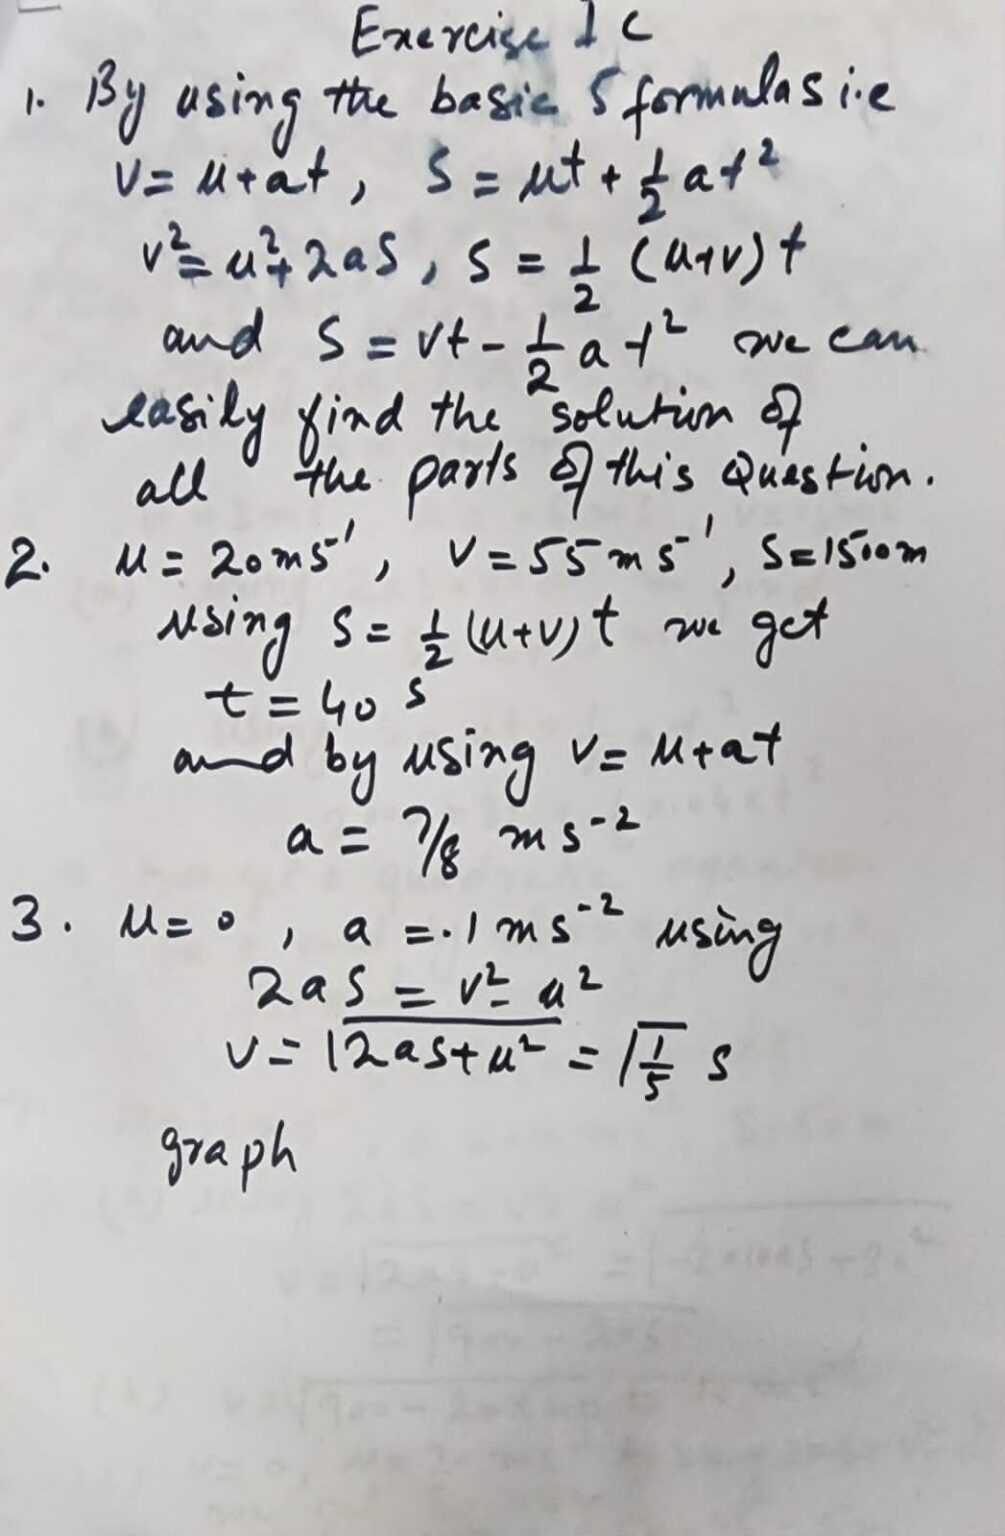 Exercise 1 C
1. By using the basic 5 formulas i.e
v = u + at, S = ut + 1/2 at²
v² = u² + 2aS, S = 1/2 (u+v) t
and S = vt - 1/2 a t² we can
easily find the solution of
all the parts of this Question.
2. u = 20 ms⁻¹, v = 55 ms⁻¹, S = 1500m
using S = 1/2 (u+v) t we get
t = 40 s
and by using v = u + at
a = 7/8 m s⁻²
3. u = 0, a = .1 ms⁻² using
2aS = v² - u²
v = √2as + u² = √1/5 s
graph